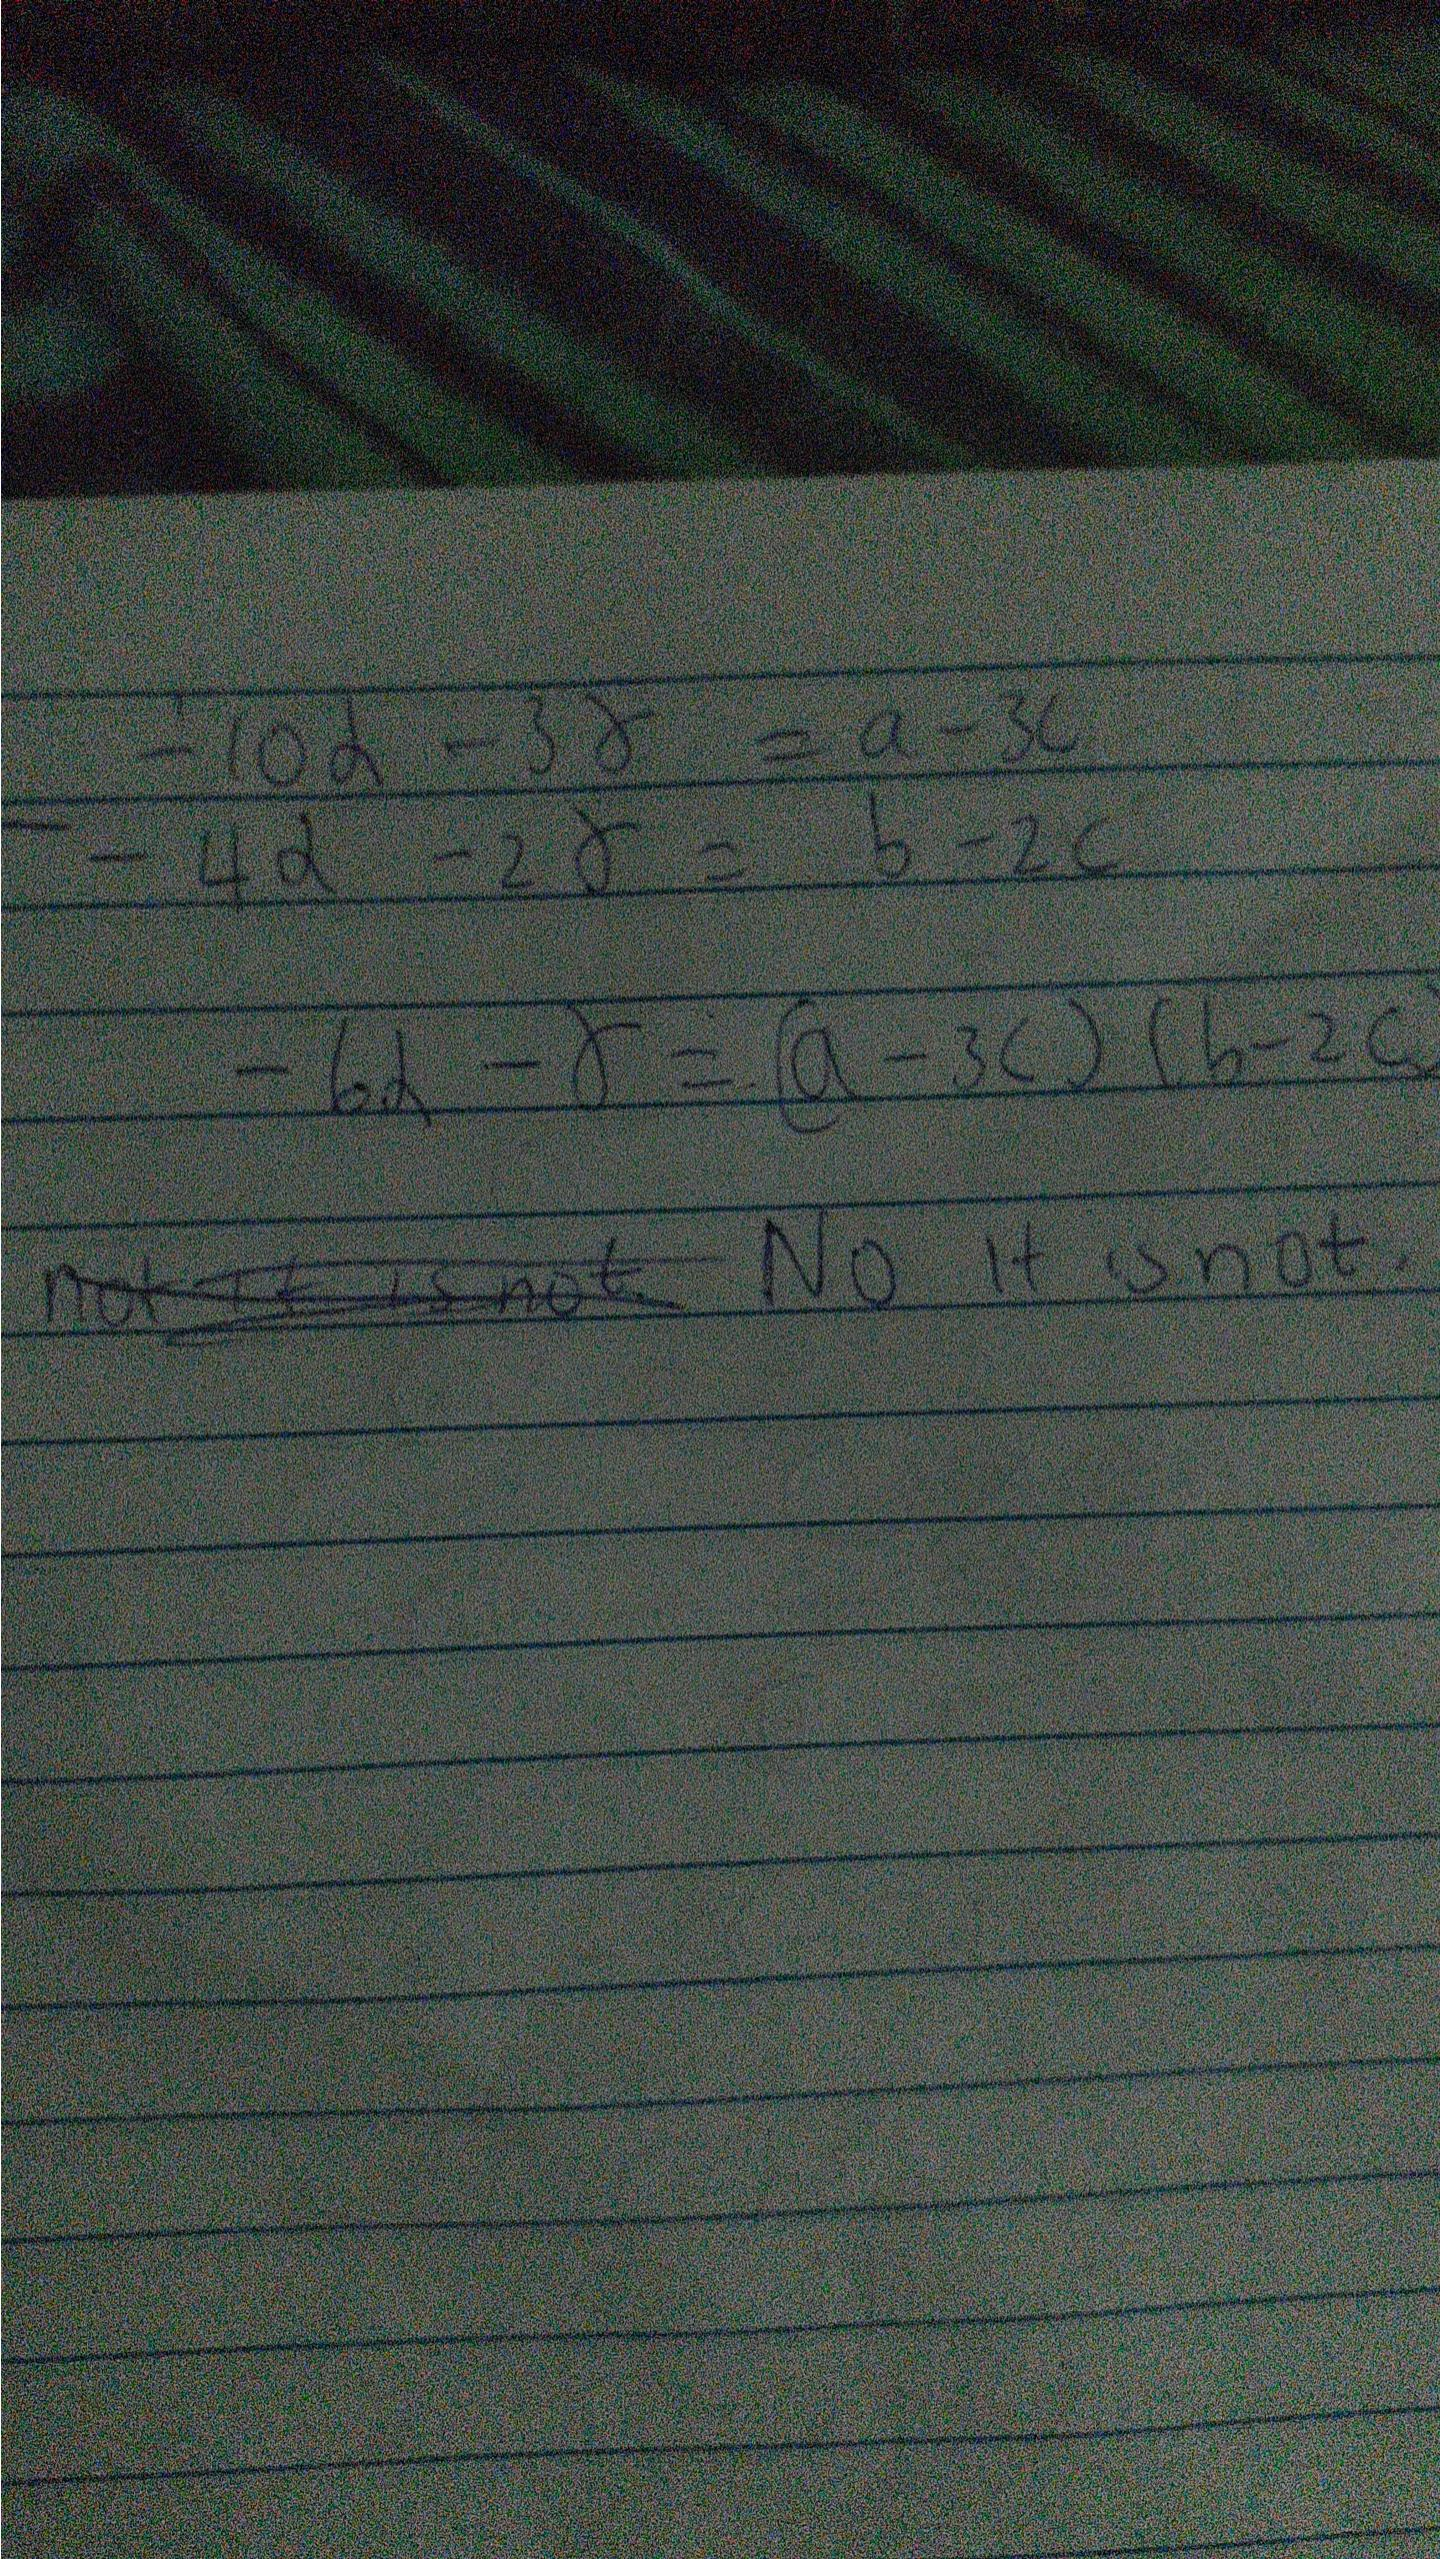 -10α -3γ = a-3c
- -4α -2γ = b-2c
-6α -γ = (a-3c)(b-2c)
not it is not. No it is not.